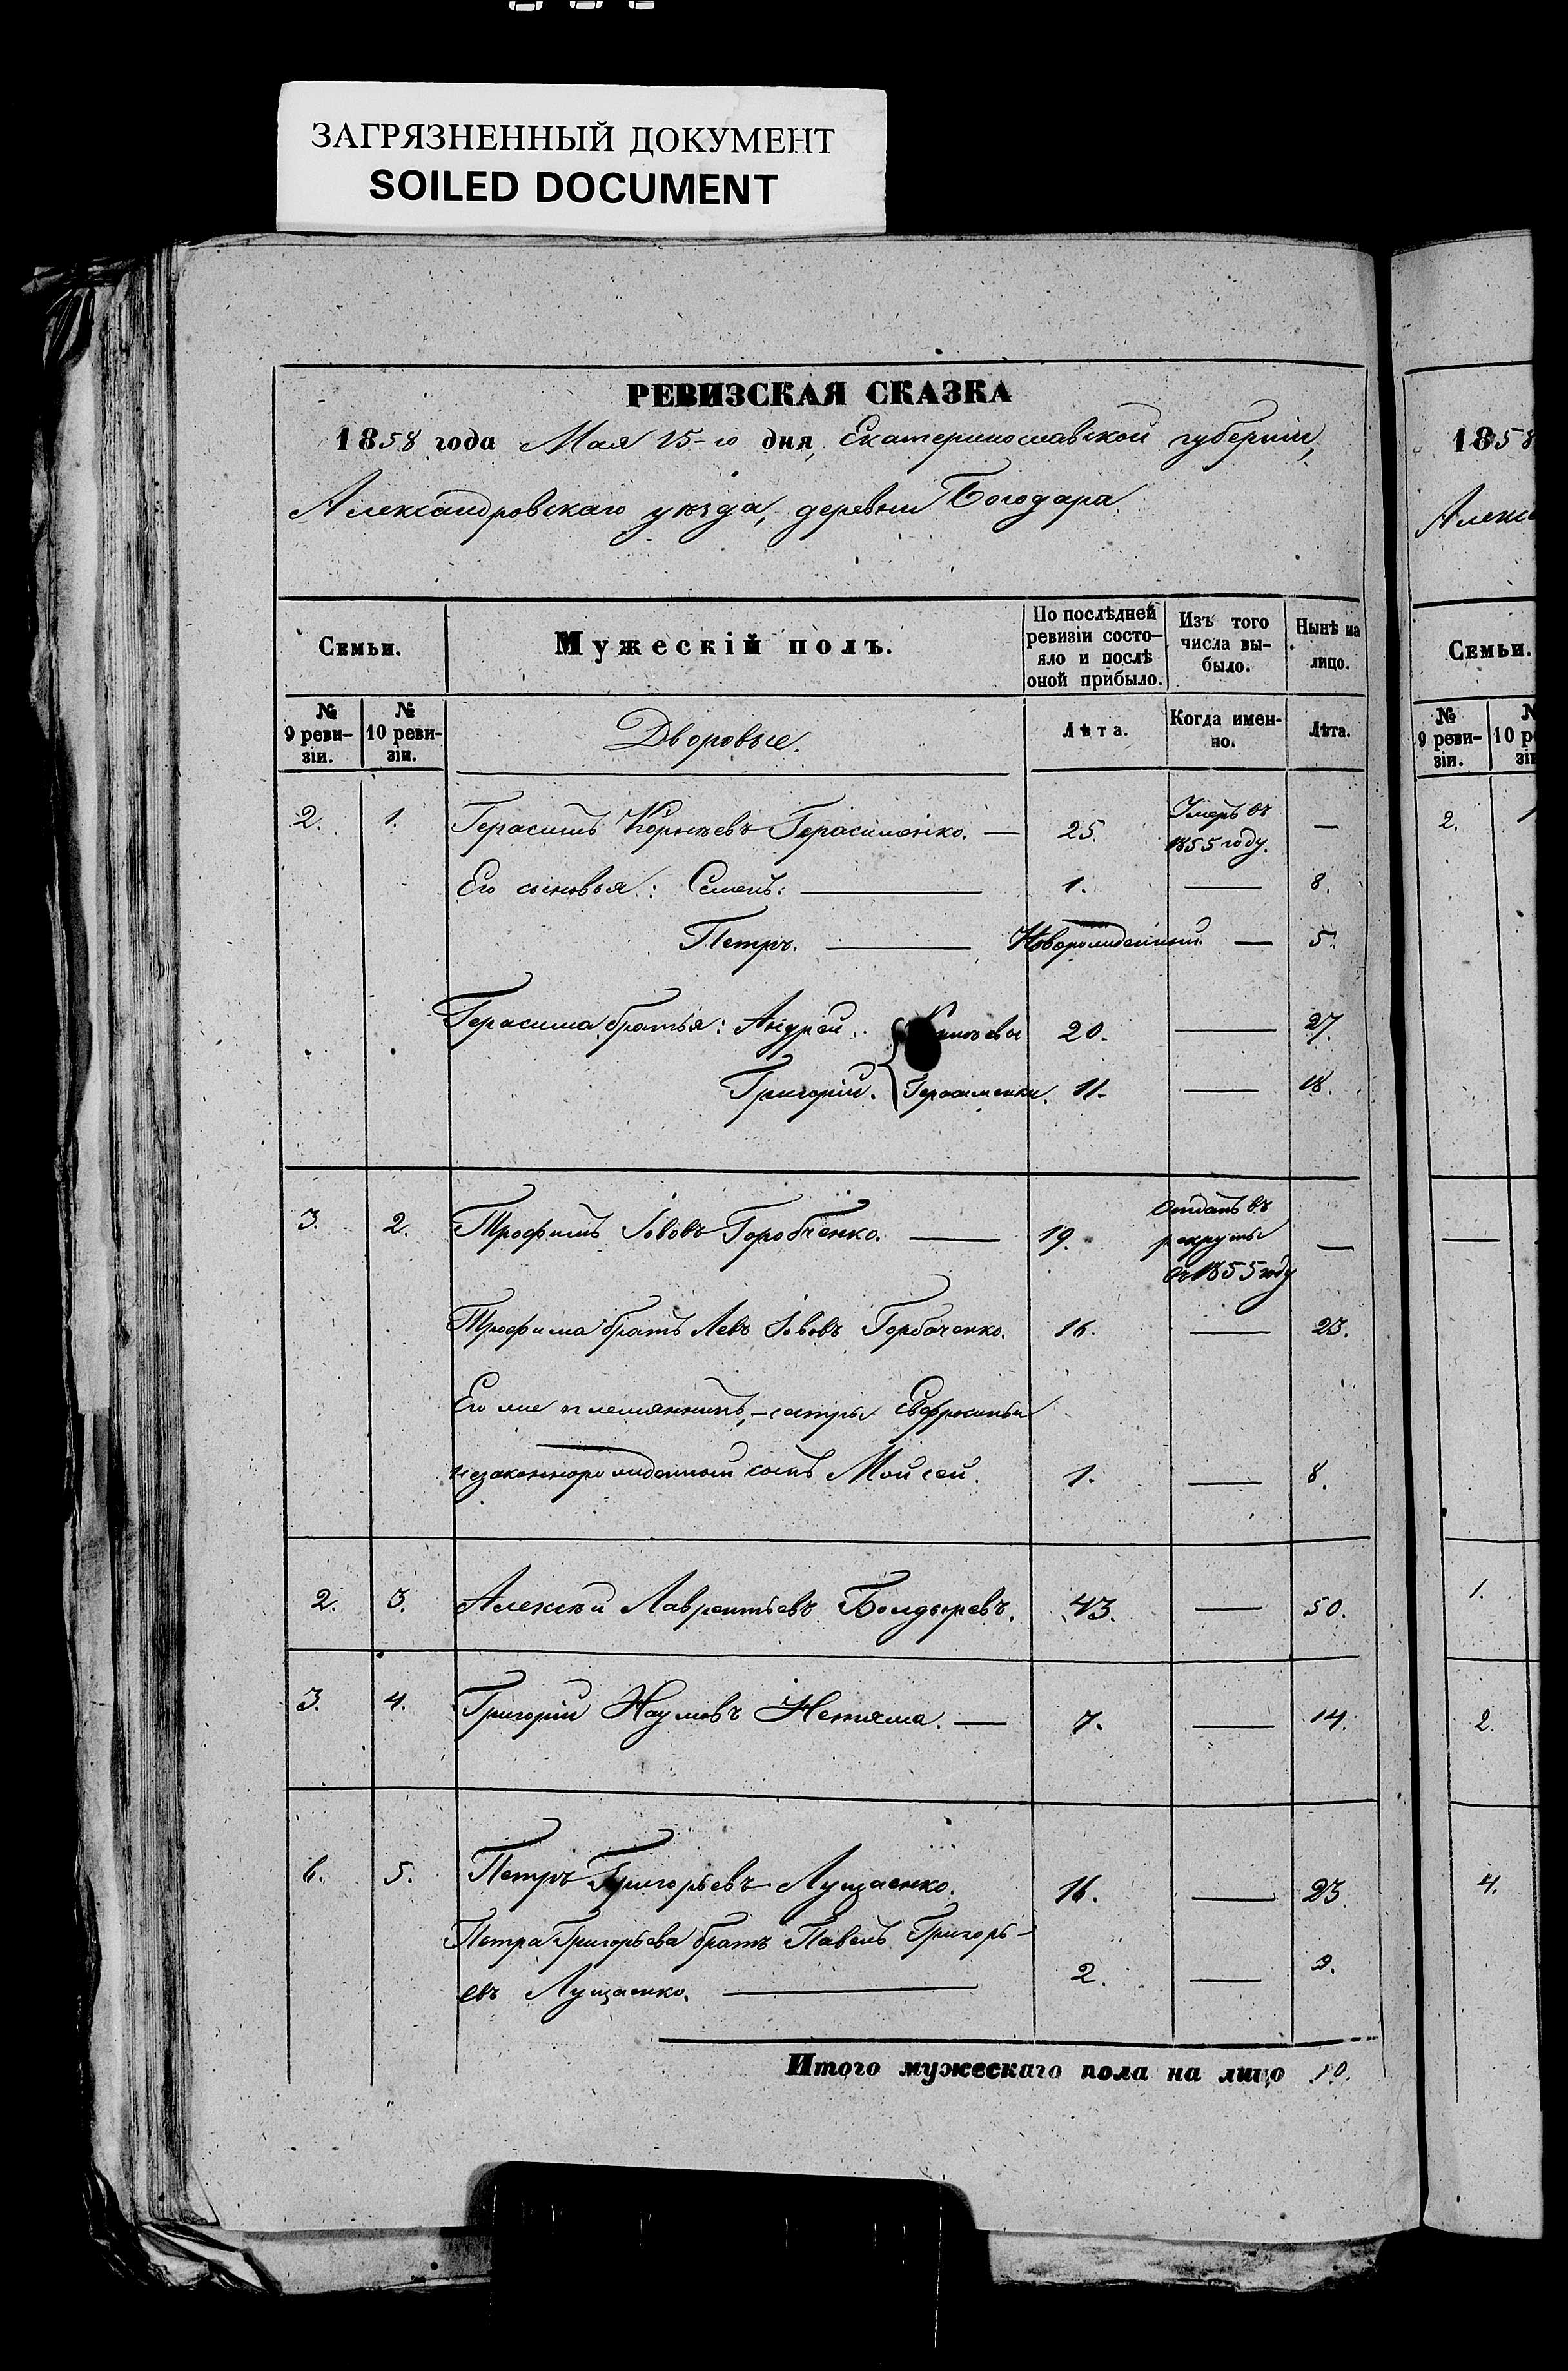 ЗАГРЯЗНЕННЫЙ ДОКУМЕНТ
SOILED DOCUMENT
РЕВИЗСКАЯ СКАЗКА
1858 года Мая 15-го дня, Екатеринославской губернии,
Александровскаго уѣзда, деревни Богодара.
Семьи. Мужескій полъ. По послѣдней ревизіи состо-яло и послѣ оной прибыло. Изъ того числа вы-было. Нынѣ на лицо.
№ 9 реви-зіи. № 10 реви-зіи. Дворовые. Лѣта. Когда имен-но. Лѣта.
2. 1. Герасимъ Корнѣевъ Герасименко. — 25. Умеръ въ 1855 году. —
Его сыновья: Семенъ: — 1. — 8.
Петръ. — Новорожденный. — 5.
Герасима братья: Андрей. 20. — 27.
Григорій. Герасименки. 11. — 18.
3. 2. Трофимъ Іововъ Горобченко. — 19. Отданъ въ рекруты въ 1855 году —
Трофима братъ Левъ Іововъ Горбаченко. 16. — 23.
Его же племянникъ, - сестры Евфросиньи
незаконнорожденный сынъ Мойсей. 1. — 8.
2. 3. Алексѣй Лаврентьевъ Болдыревъ. 43. — 50.
3. 4. Григорій Наумовъ Нетяма. — 7. — 14.
6. 5. Петръ Григорьевъ Лущаенко. 16. — 23.
Петра Григорьева братъ Павелъ Григорь-
евъ Лущаенко. — 2. — 9.
Итого мужескаго пола на лицо 10.
1858
Алекса
Семьи.
№ 9 реви-зіи. 10 ре зіи
2. 1
1.
2.
4.